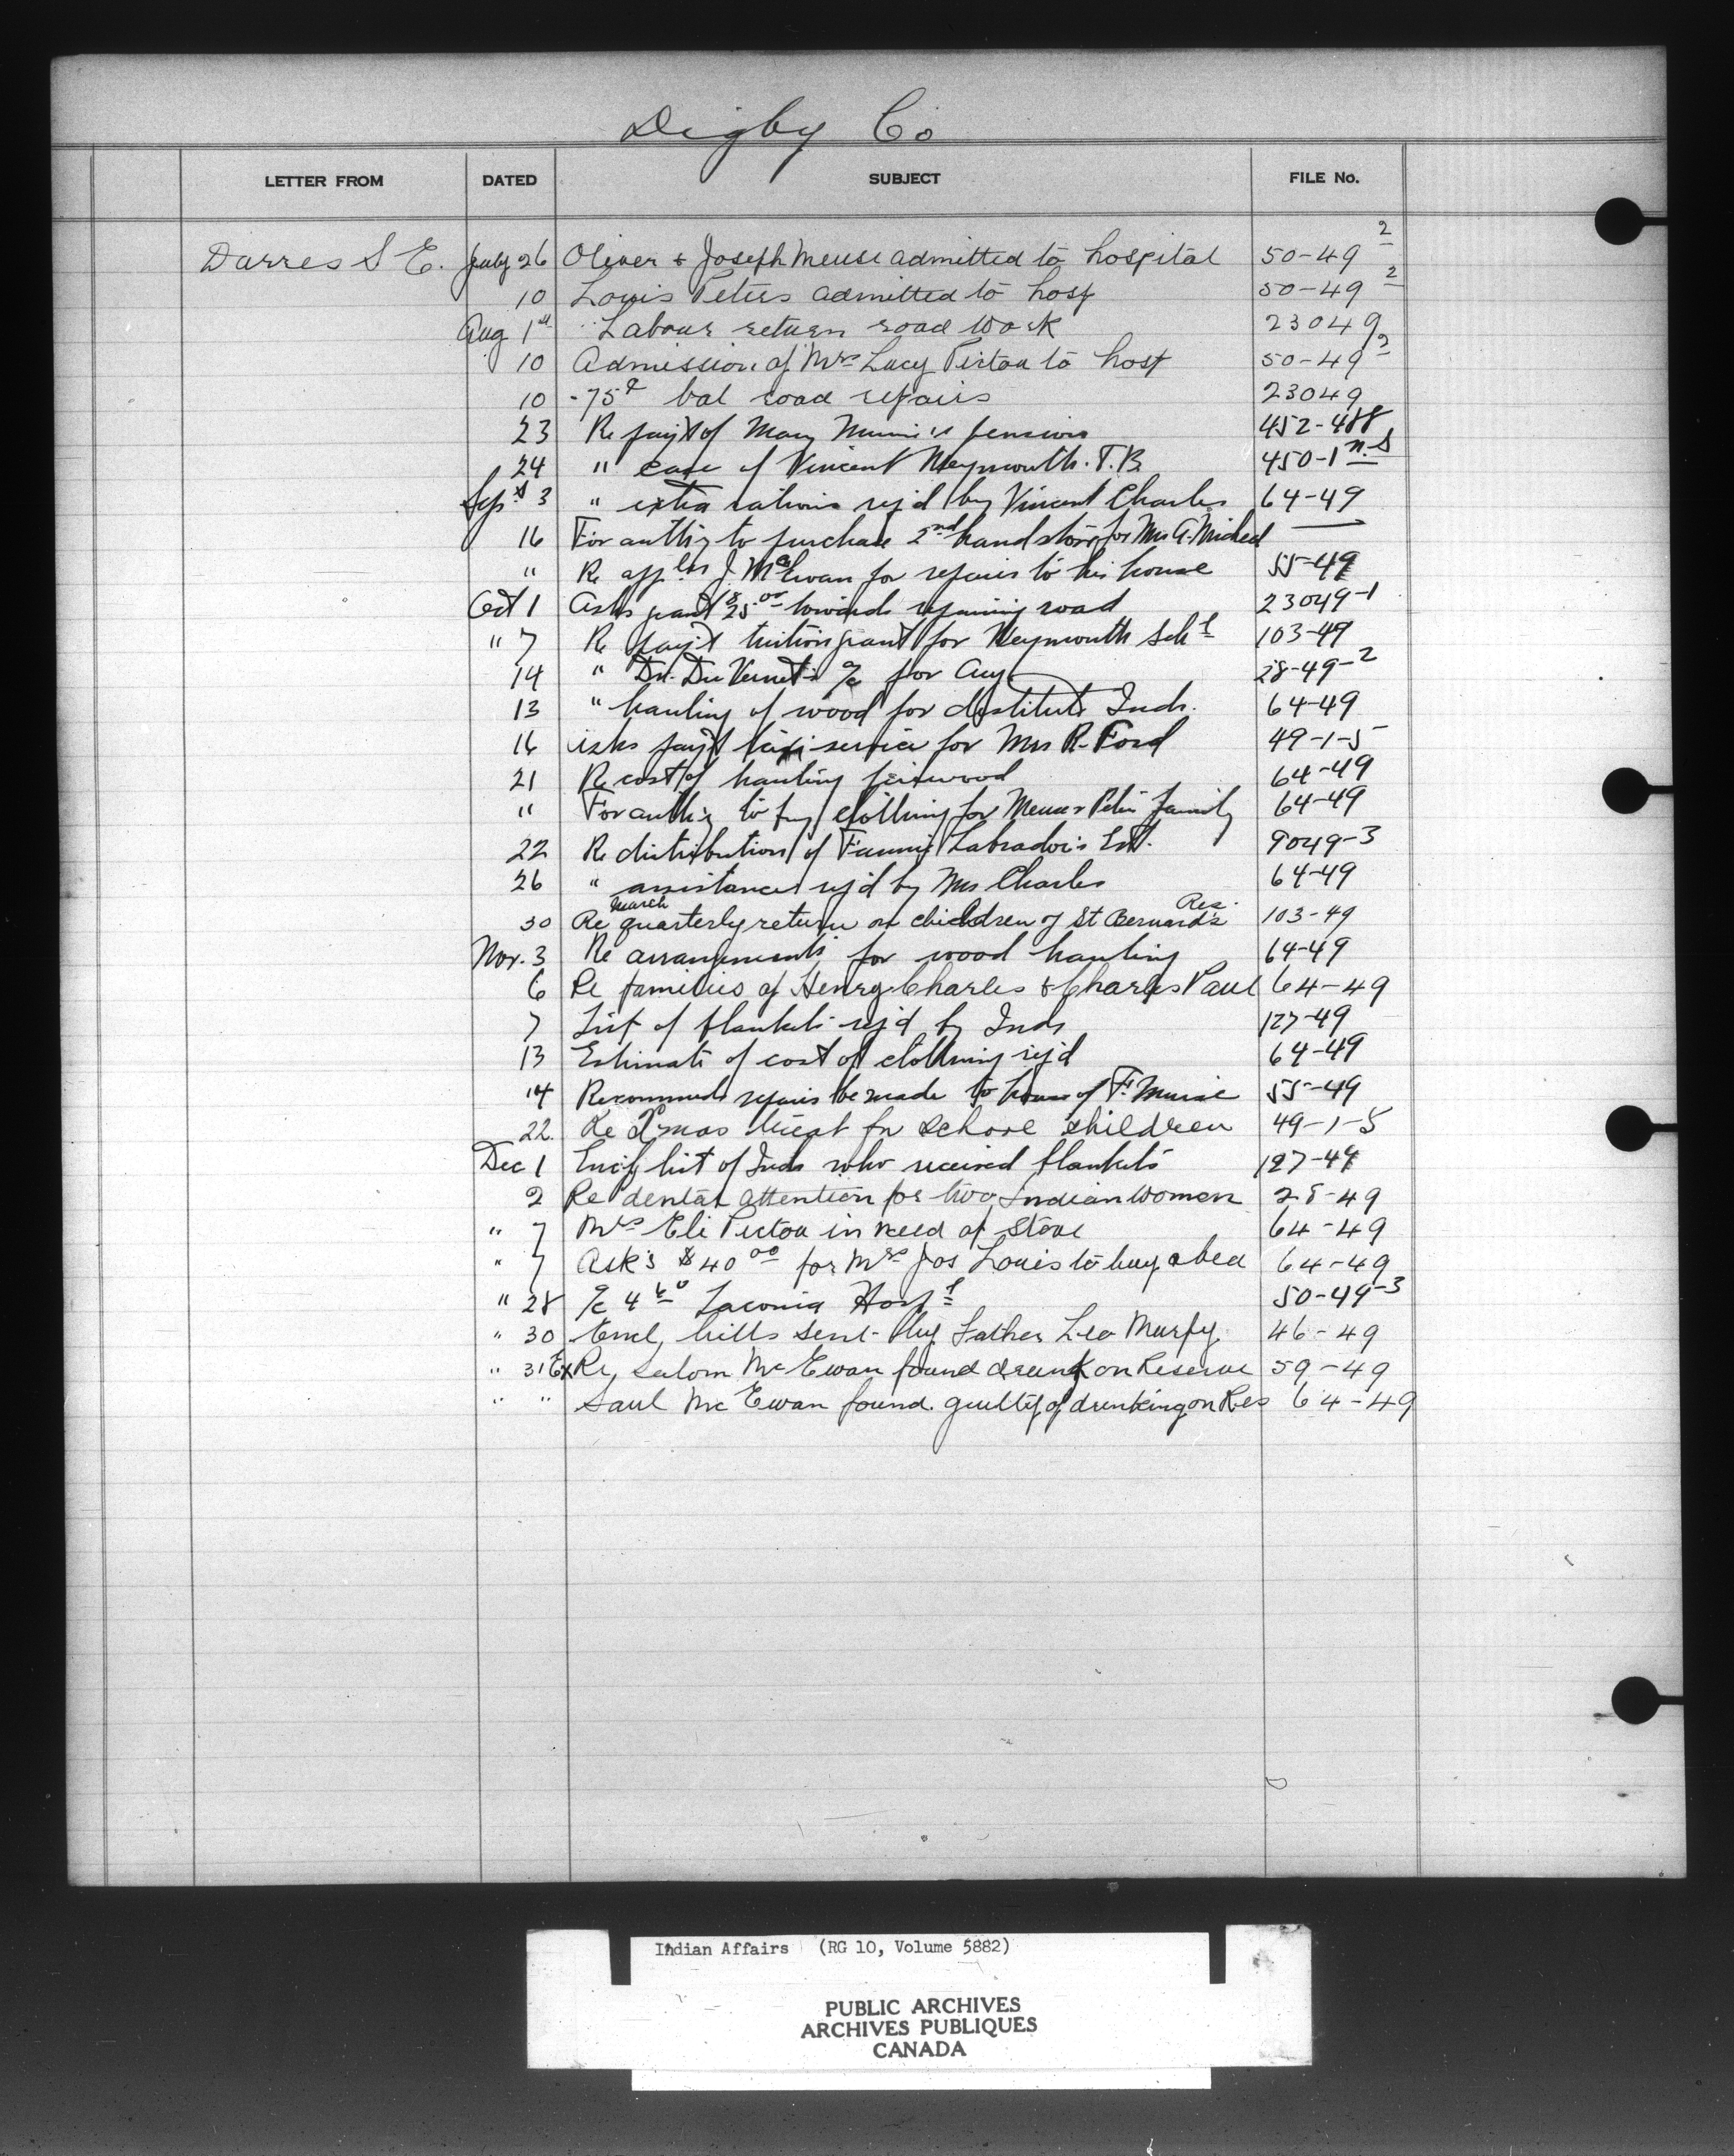 Digby Co
LETTER FROM DATED SUBJECT FILE No.
Darres S E. July 26 Oliver & Joseph Meuse admitted to hospital 50-49 2
10 Louis Peters admitted to hosp 50-49 2
Aug 1st Labour return road work 23049
10 Admission of Mrs Lucy Pictou to hosp 50-49 2
10 .75¢ bal road repairs 23049
23 Re pay't of Mary pension 452-488
24 " case of Vincent Weymouth. T.B. 450-1 n.s
Sept 3 " extra rations req'd by Vincent Charles 64-49
16 For auth'y to purchase 2nd hand stove for Mrs A. Micheal —
" Re app'l'n J. McEwan for repairs to his house 55-49
Oct 1 Asks grant $25.00 towards repairing road 23049-1
" 7 Re pay't tuition grant for Weymouth Schl 103-49
14 " Dr. DuVernet's a/c for Aug 28-49-2
13 " hauling of wood for destitute Inds. 64-49
16 asks pay't taxi service for Mrs R. Ford 49-1-5
21 Re cost of hauling firewood 64-49
" For auth'y to buy clothing for Meuse & Peter family 64-49
22 Re distribution of Fannie Labrador's Est. 9049-3
26 " assistance req'd by Mrs Charles 64-49
30 Re March quarterly return on children of St Bernard's Res. 103-49
Nov. 3 Re arrangements for wood hauling 64-49
6 Re families of Henry Charles & Charles Paul 64-49
7 List of blankets req'd by Inds 127-49
13 Estimate of cost of clothing req'd 64-49
14 Recommends repairs be made to house of F. Muise 55-49
22. Re Xmas treat for school children 49-1-5
Dec 1 Enc'g list of Inds who received blankets 127-49
2 Re dental attention for two Indian women 28-49
" 7 Mrs Eli Pictou in need of stove 64-49
" 7 Ask's $40 00 for Mrs Jos Louis to buy a bed 64-49
" 28 a/c 4 60 Laconia Hosp'l 50-49-3
" 30 Encl bills sent by Father Leo Murfy 46-49
" 31 Ex Re, Salom McEwan found drunk on Reserve 59-49
" " Saul McEwan found guilty of drunking on Res 64-49
Indian Affairs (RG 10, Volume 5882)
PUBLIC ARCHIVES
ARCHIVES PUBLIQUES
CANADA